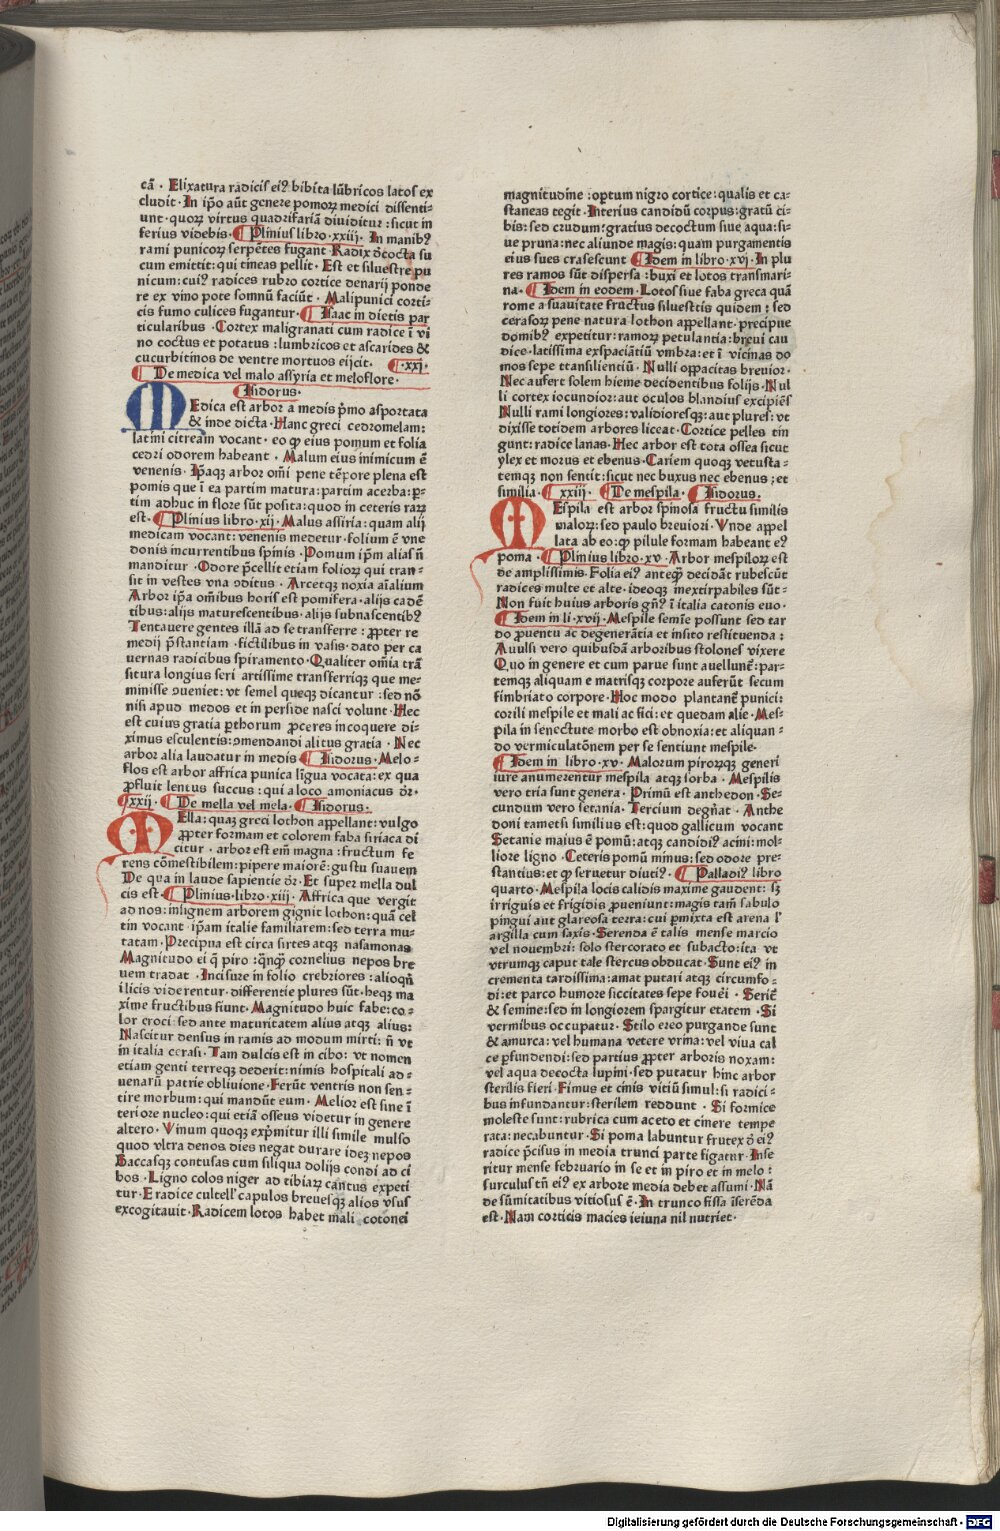 cā · Elixatura radicis eiꝰ bibita lūbricos latos ex
cludit · In ip̄o aūt genere pomoꝝ medici dissenti-
unt · quoꝝ virtus quadrifariā diuiditur : sicut in
ferius videbis · ¶ Plinius libro · xxiij · In manibꝰ
rami punicoꝝ serpētes fugant · Radix d̄cocta su
cum emittit: qui tineas pellit · Est et siluestre pu
nicum : cuiꝰ radices rubro cortice denarij ponde
re ex vino pote somnū faciūt · Malipunici corti-
cis fumo culices fugantur · ¶ Isaac in dietis par
ticularibus · Cortex maligranati cum radice ī vi
no coctus et potatus : lumbricos et ascarides &
cucurbitinos de ventre mortuos eijcit · ¶ · xxj ·
¶ De medica vel malo assyria et meloflore ·
¶ Isidorus ·
MEdica est arbor a medis p̄mo asportata
& inde dicta · Hanc greci cedromelam :
latini citream vocant · eo ꝙ eius pomum et folia
cedri odorem habeant · Malum eius inimicum ē
venenis · Ip̄aqꝫ arbor om̄i pene tēpore plena est
pomis que ī ea partim matura : partim acerba : ꝑ-
tim adhuc in flore sūt posita : quod in ceteris raꝝ
est · ¶ Plinius libro · xij · Malus assiria : quam alij
medicam vocant : venenis medetur · folium ē vne
donis incurrentibus spinis · Pomum ip̄m alias n̄
manditur · Odore p̄cellit etiam folioꝝ qui tran-
sit in vestes vna ꝯditus · Arcetqꝫ noxia aīalium
Arbor ip̄a om̄ibus horis est pomifera · alijs cadē
tibus : alijs maturescentibus · alijs subnascentibꝰ
Tentauere gentes illā ad se transferre : ꝓpter re
medij p̄stantiam · fictilibus in vasis · dato per ca
uernas radicibus spiramento · Qualiter om̄ia trā
situra longius seri artissime transferriqꝫ que me-
minisse ꝯueniet : vt semel queqꝫ dicantur : sed nō
nisi apud medos et in perside nasci voluit · Hec
est cuius gratia ꝑthorum ꝓceres incoquere di-
ximus esculentis : ꝯmendandi alitus gratia · Nec
arbor alia laudatur in medis ¶ Isidorus · Melo-
flos est arbor affrica punica līgua vocata : ex qua
ꝓfluit lentus succus : qui a loco amoniacus d̄r ·
¶ xxij · ¶ De mella vel mela · ¶ Isidorus ·
MElla : quaꝫ greci lothon appellant : vulgo
ꝓpter formam et colorem faba siriaca di
citur · arbor est em̄ magna : fructum fe
rens cōmestibilem : pipere maiorē : gustu suauem
De qua in laude sapientie d̄r · Et super mella dul
cis est · ¶ Plinius · libro · xiij · Affrica que vergit
ad nos : insignem arborem gignit lothon : quā cel
tin vocant · ip̄am italie familiarem : sed terra mu-
tatam · Precipua est circa sirtes atqꝫ nasamonas
Magnitudo ei ꝗ piro : qnꝗ̄ cornelius nepos bre
uem tradat · Incisure in folio crebriores : alioqn̄
ilicis viderentur · differentie plures sūt · heqꝫ ma
xime fructibus fiunt · Magnitudo huic fabe : co-
lor croci : sed ante maturitatem alius atqꝫ alius :
Nascitur densus in ramis ad modum mirti : n̄ vt
in italia cerasi · Tam dulcis est in cibo : vt nomen
etiam genti terreqꝫ dederit : nimis hospitali ad-
uenarū patrie obliuione · Ferūt ventris non sen-
tire morbum : qui mandūt eum · Melior est sine ī
teriore nucleo : qui etiā osseus videtur in genere
altero · Vinum quoqꝫ exp̄mitur illi simile mulso
quod vltra denos dies negat durare ideꝫ nepos
Baccasqꝫ contusas cum siliqua dolijs condi ad ci
bos · Ligno colos niger ad tibiaꝝ cantus expeti
tur · E radice cultell' capulos breuesqꝫ alios vsus
excogitauit · Radicem lotos habet mali cotonei
magnitudine : optum nigro cortice : qualis et ca-
staneas tegit · Interius candidū corpus : gratū ci-
bis : sed crudum : gratius decoctum siue aqua : si-
ue pruna : nec aliunde magis : quam purgamentis
eius sues crasescunt ¶ Idem in libro · xvj · In plu
res ramos sūt dispersa : buxi et lotos transmari-
na · ¶ Idem in eodem · Lotos siue faba greca quā
rome a suauitate fructus siluestris quidem : sed
cerasoꝝ pene natura lothon appellant · precipue
domibꝰ expetitur : ramoꝝ petulantia : breui cau
dice · latissima exspaciātiū vmbra : et ī vicinas do
mos sepe transilientiū · Nulli opacitas breuior ·
Nec aufert solem hieme decidentibus folijs · Nul
li cortex iocundior : aut oculos blandius excipiēs
Nulli rami longiores : validioresqꝫ : aut plures : vt
dixisse totidem arbores liceat · Cortice pelles tin
gunt : radice lanas · Hec arbor est tota ossea sicut
ylex et morus et ebenus · Cariem quoqꝫ vetusta-
temqꝫ non sentit : sicut nec buxus nec ebenus : et
similia · ¶ xxiij · ¶ De mespila · ¶ Isidorus ·
MEspila est arbor spinosa fructu similis
maloꝝ : sed paulo breuiori · Vnde appel
lata ab eo : ꝙ pilule formam habeant eiꝰ
poma · ¶ Plinius libro · xv · Arbor mespiloꝝ est
de amplissimis · Folia eiꝰ anteꝙ̄ decidāt rubescūt
radices multe et alte · ideoqꝫ inextirpabiles sūt-
Non fuit huius arboris gn̄ꝰ ī italia catonis euo ·
¶ Idem in li · xvij · Mespile semīe possunt sed tar
do ꝓuentu ac degenerātia et insito restituenda :
Auulsi vero quibusdā arboribus stolones vixere
Quo in genere et cum parue sunt auellunt̄ : par-
temqꝫ aliquam e matrisqꝫ corpore auferūt secum
fimbriato corpore · Hoc modo plantant̄ punici :
corili mespile et mali ac fici : et quedam alie · Mes-
pila in senectute morbo est obnoxia : et aliquan-
do vermiculatōnem per se sentiunt mespile ·
¶ Idem in libro · xv · Malorum piroꝝqꝫ generi
iure anumerentur mespila atqꝫ sorba · Mespilis
vero tria sunt genera · Primū est anthedon · Se-
cundum vero setania · Tercium degn̄at · Anthe
doni tametsi similius est : quod gallicum vocant
Setanie maius ē pomū : atqꝫ candidiꝰ acini : mol-
liore ligno · Ceteris pomū minus : sed odore pre-
stantius : et ꝙ seruetur diutiꝰ · ¶ Palladiꝰ libro
quarto · Mespila locis calidis maxime gaudent : sꝫ
irriguis et frigidis ꝓueniunt : magis tam̄ sabulo
pingui aut glareosa terra : cui ꝑmixta est arena l'
argilla cum saxis · Serenda ē talis mense marcio
vel nouembri : solo stercorato et subacto : ita vt
vtrumqꝫ caput tale stercus obducat · Sunt eiꝰ in
crementa tardissima : amat putari atqꝫ circumfo-
di : et parco humore siccitates sepe foueri · Serit̄
& semine : sed in longiorem spargitur etatem · Si
vermibus occupatur · Stilo ereo purgande sunt
& amurca : vel humana vetere vrina : vel viua cal
ce ꝑfundendi : sed partius ꝓpter arboris noxam :
vel aqua decocta lupini · sed putatur hinc arbor
sterilis fieri · Fimus et cinis vitiū simul : si radici-
bus infundantur : sterilem reddunt · Si formice
moleste sunt : rubrica cum aceto et cinere tempe
rata : necabuntur · Si poma labuntur frutex d̄ eiꝰ
radice p̄cisus in media trunci parte figatur · Inse
ritur mense februario in se et in piro et in melo :
surculus tn̄ eiꝰ ex arbore media debet assumi · Nā
de sūmitatibus vitiosus ē · In trunco fissa īserēda
est · Nam corticis macies ieiuna nil nutriet ·
Digitalisierung gefördert durch die Deutsche Forschungsgemeinschaft - DFG